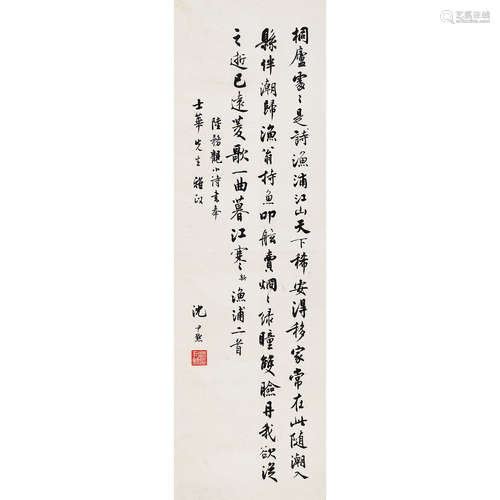 桐廬處〻是詩漁浦江山天下稀安得移家常在此随潮入
縣伴潮歸漁翁持魚叩舷賣烱〻緑瞳雙臉丹我欲從
之逝已遠菱歌一曲暮江寒〻新漁浦二首
陸務觀小詩書奉
士華先生雅政
沈尹默
艺狐在线